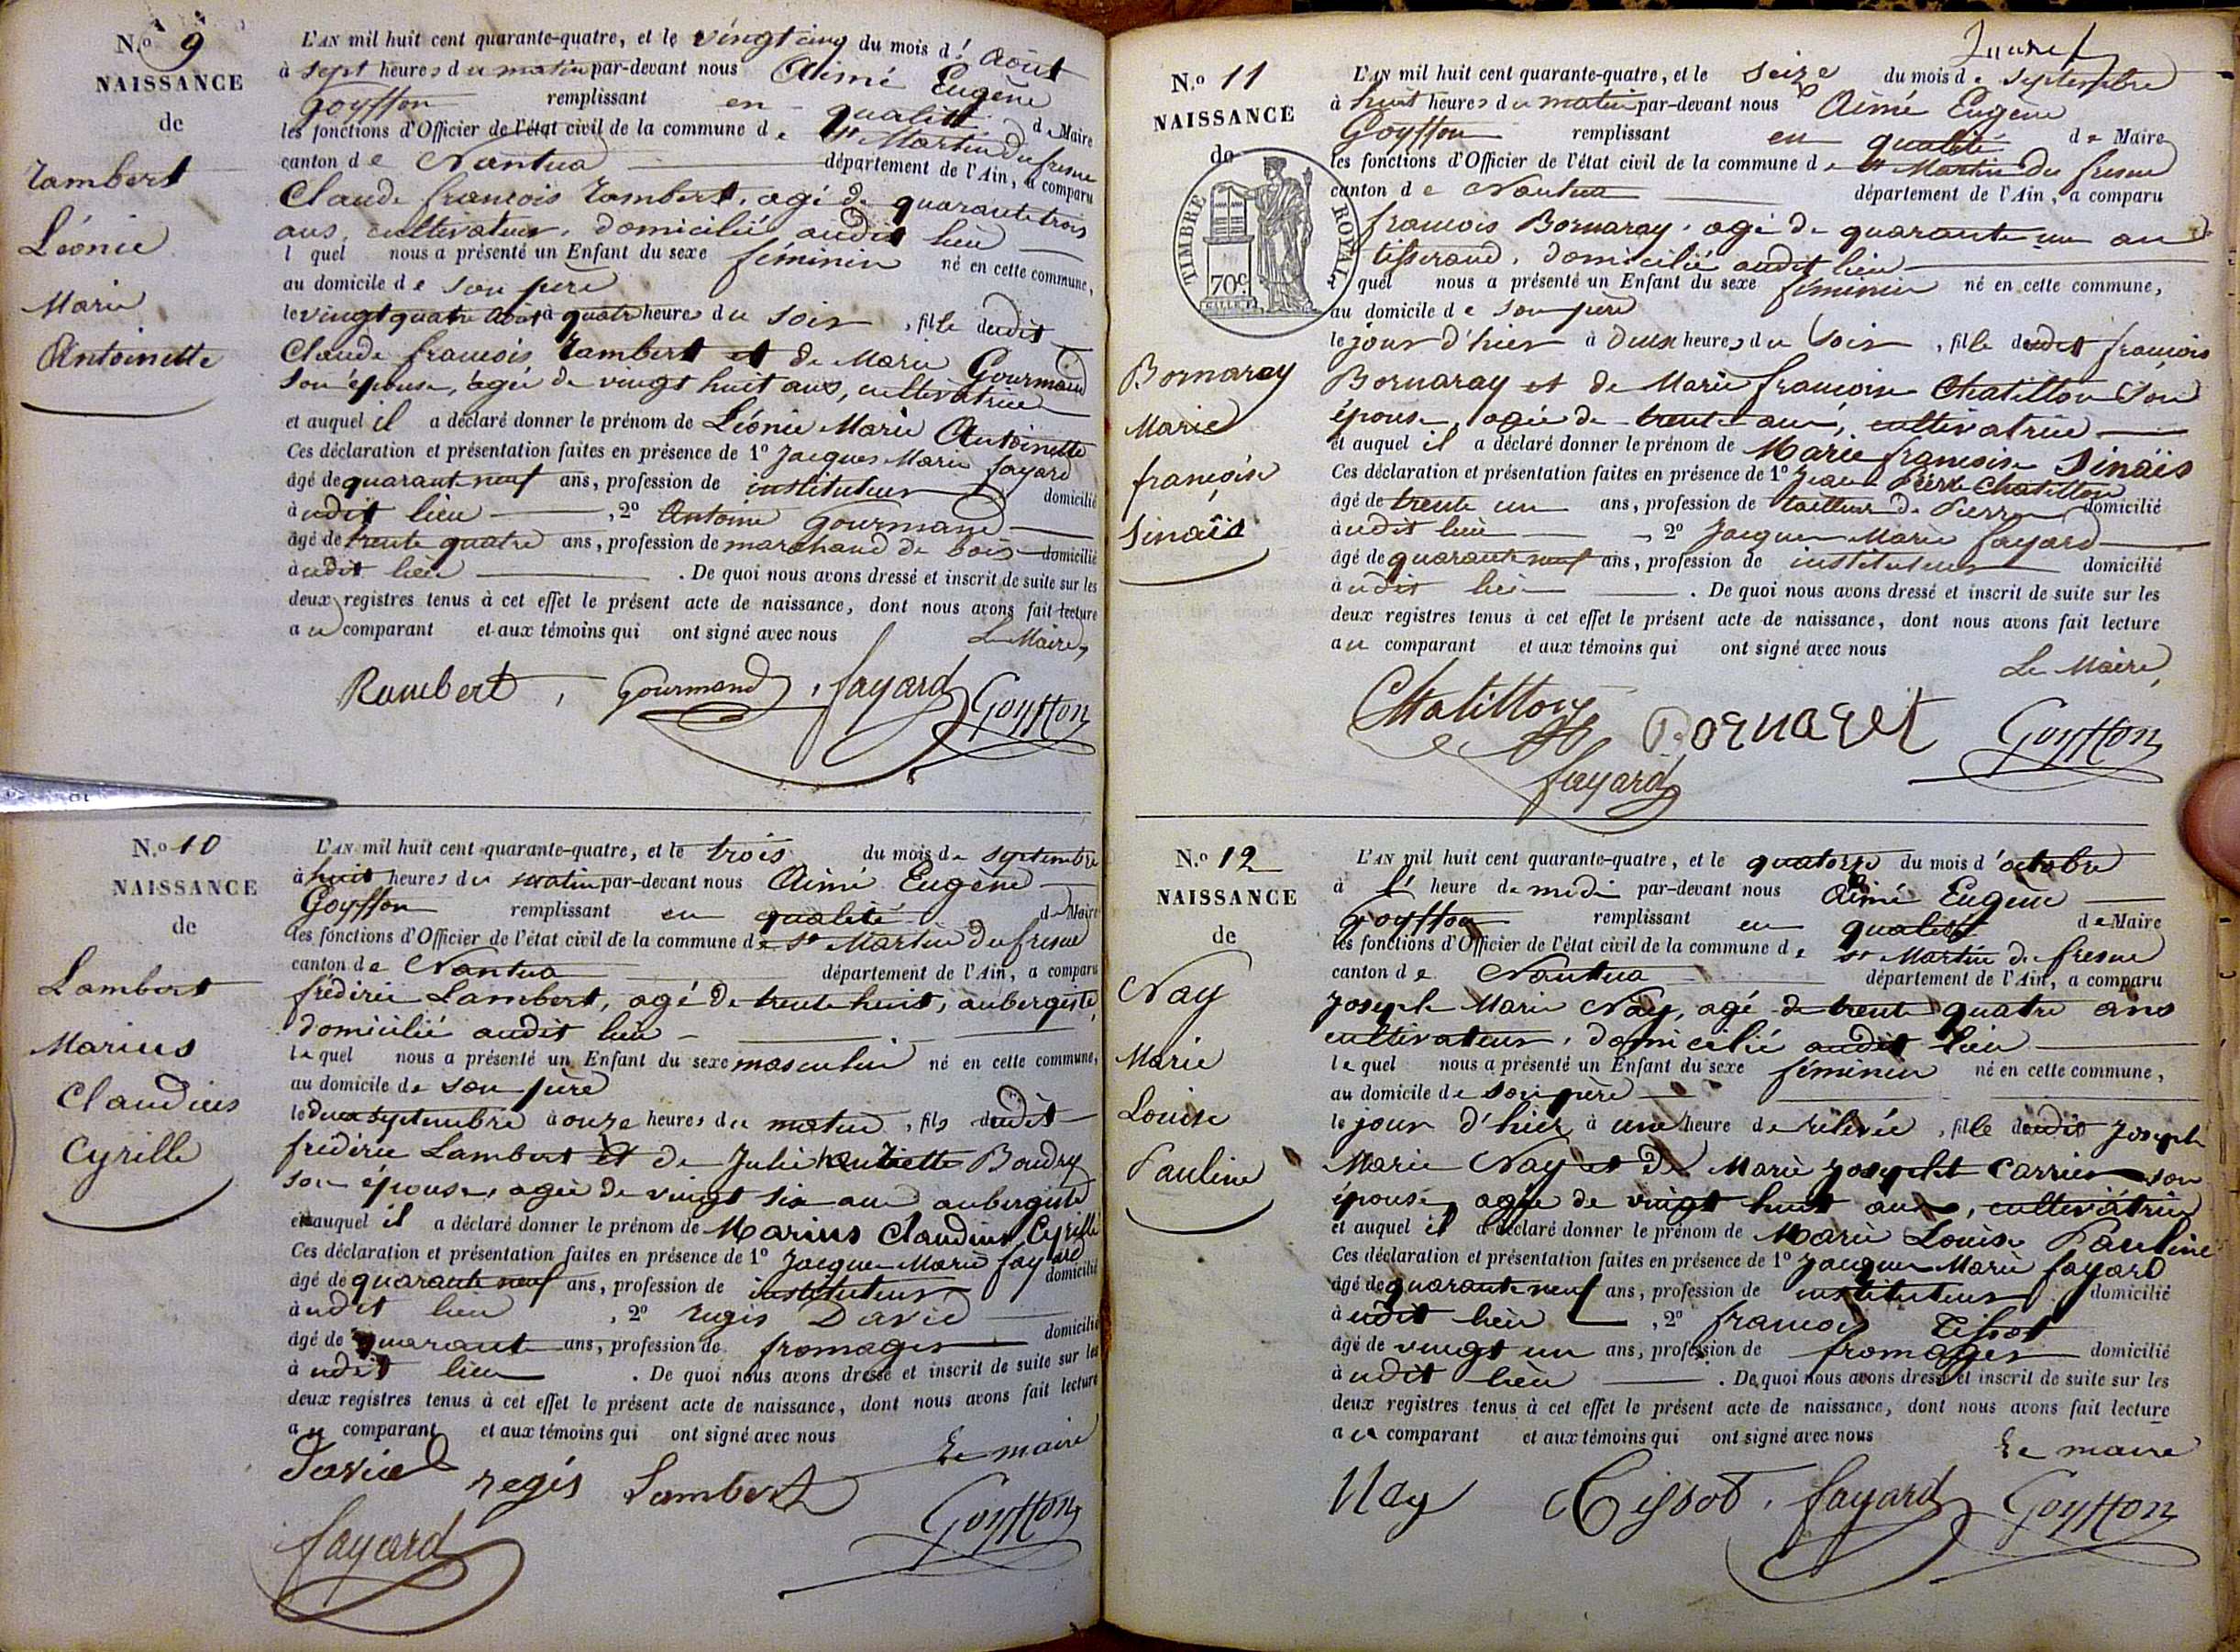 N.o 9
NAISSANCE
de
Rambert
Léonie
Marie
Antoinette
L'AN mil huit cent quarante-quatre, et le vingt cinq du mois d' Août
à sept heures du matin par-devant nous Aimé Eugène
Goyffon remplissant en qualité de Maire
les fonctions d'Officier de l'état civil de la commune de St Martin du fresne
canton de Nantua département de l'Ain, a comparu
Claude françois Rambert, agé de quarante trois
ans, cultivateur, domicilié audit lieu
l quel nous a présenté un Enfant du sexe féminin né en cette commune,
au domicile de son père
le vingt quatre Août à quatre heures du soir, fille dudit
Claude françois Rambert et de Marie Gourmand
son épouse, agée de vingt huit ans, cultivatrice
et auquel il a déclaré donner le prénom de Léonie Marie Antoinette
Ces déclaration et présentation faites en présence de 1o Jacques Marie fayard
âgé de quarante neuf ans, profession de instituteur domicilié
à udit lieu, 2o Antoine Gourmand
âgé de trente quatre ans, profession de marchand de bois domicilié
à udit lieu. De quoi nous avons dressé et inscrit de suite sur les
deux registres tenus à cet effet le présent acte de naissance, dont nous avons fait lecture
au comparant et aux témoins qui ont signé avec nous
Le Maire,
Rambert, Gourmand, fayard Goyffon
N.o 10
NAISSANCE
de
Lambert
Marius
Claudius
Cyrille
L'AN mil huit cent quarante-quatre, et le trois du mois de septembre
à huit heures du matin par-devant nous Aimé Eugène
Goyffon remplissant en qualité de Maire
les fonctions d'Officier de l'état civil de la commune de St Martin du fresne
canton de Nantua département de l'Ain, a comparu
frédéric Lambert, agé de trente huit, aubergiste,
domicilié audit lieu
le quel nous a présenté un Enfant du sexe masculin né en cette commune,
au domicile de son père
le deux septembre à onze heures du matin, fils dudit
frédéric Lambert et de Julie Boudry
son épouse, agée de vingt six ans aubergiste
et auquel il a déclaré donner le prénom de Marius Claudius Cyrille
Ces déclaration et présentation faites en présence de 1o Jacques Marie fayard
âgé de quarante neuf ans, profession de instituteur domicilié
à udit lieu, 2o Regis David
âgé de quarante ans, profession de fromager domicilié
à udit lieu. De quoi nous avons dressé et inscrit de suite sur les
deux registres tenus à cet effet le présent acte de naissance, dont nous avons fait lecture
au comparant et aux témoins qui ont signé avec nous
Le maire
David regis Lambert
fayard Goyffon
N.o 11
NAISSANCE
de
TIMBRE ROYAL
70c
Bornaray
Marie
françoise
Sinaïs
L'AN mil huit cent quarante-quatre, et le seize du mois de septembre
à huit heures du matin par-devant nous Aimé Eugène
Goyffon remplissant en qualité de Maire
les fonctions d'Officier de l'état civil de la commune de St Martin du fresne
canton de Nantua département de l'Ain, a comparu
françois Bornaray, agé de quarante un ans
tisserand, domicilié audit lieu
quel nous a présenté un Enfant du sexe féminin né en cette commune,
au domicile de son père
le jour d'hier à deux heures du soir, fille dudit françois
Bornaray et de Marie françoise Chatillon son
épouse, agée de trente ans, cultivatrice
et auquel il a déclaré donner le prénom de Marie françoise Sinaïs
Ces déclaration et présentation faites en présence de 1o Jean Pierre Chatillon
âgé de trente un ans, profession de tailleur de Pierre domicilié
à udit lieu, 2o Jacques Marie fayard
âgé de quarante neuf ans, profession de instituteur domicilié
à udit lieu. De quoi nous avons dressé et inscrit de suite sur les
deux registres tenus à cet effet le présent acte de naissance, dont nous avons fait lecture
au comparant et aux témoins qui ont signé avec nous
Le Maire,
Chatillon Bornaret Goyffon
fayard
N.o 12
NAISSANCE
de
Nay
Marie
Louise
Pauline
L'AN mil huit cent quarante-quatre, et le quatorze du mois d'octobre
à l' heure de midi par-devant nous Aimé Eugène
Goyffon remplissant en qualité de Maire
les fonctions d'Officier de l'état civil de la commune de St Martin du fresne
canton de Nantua département de l'Ain, a comparu
Joseph Marie Nay, agé de trente quatre ans
cultivateur, domicilié audit lieu
le quel nous a présenté un Enfant du sexe féminin né en cette commune,
au domicile de son père
le jour d'hier à une heure de relevée, fille dudit Joseph
Marie Nay et de Marie Josephte Carrier son
épouse, agée de vingt huit ans, cultivatrice
et auquel il a déclaré donner le prénom de Marie Louise Pauline
Ces déclaration et présentation faites en présence de 1o Jacques Marie fayard
âgé de quarante neuf ans, profession de instituteur domicilié
à udit lieu, 2o françois Tissot
âgé de vingt un ans, profession de fromager domicilié
à udit lieu. De quoi nous avons dressé et inscrit de suite sur les
deux registres tenus à cet effet le présent acte de naissance, dont nous avons fait lecture
au comparant et aux témoins qui ont signé avec nous
Le maire
Nay Tissot. fayard Goyffon